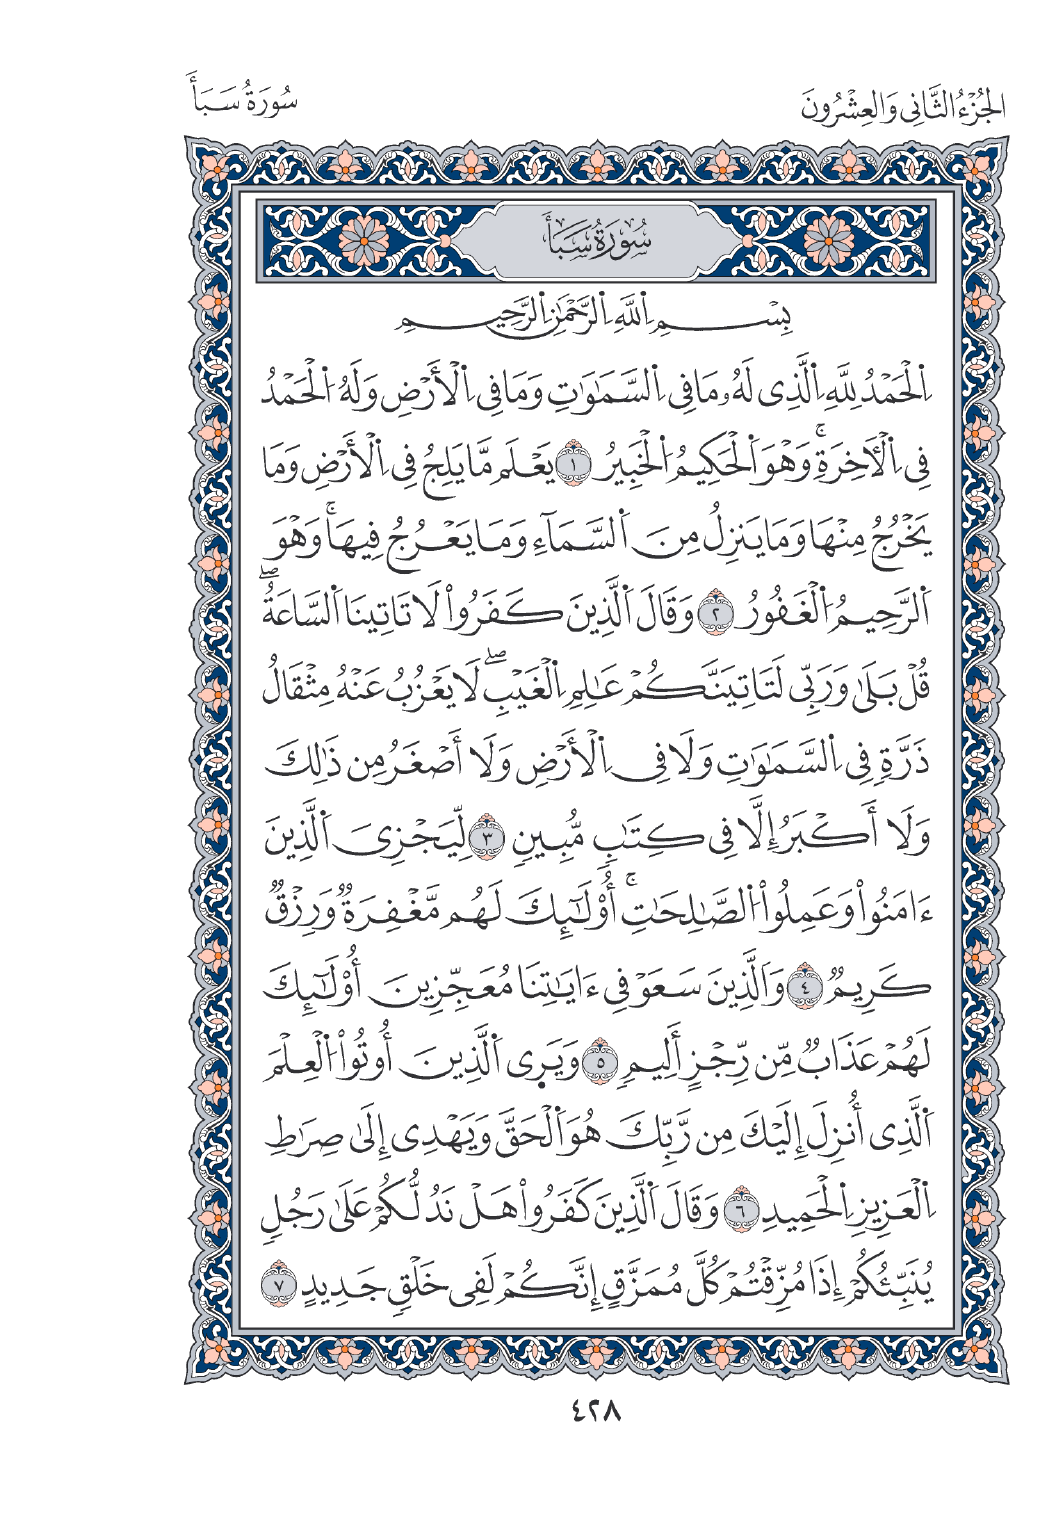 الجُزْءُ الثَّانِي وَالعِشْرُونَ
سُورَةُ سَبَأ
سُورَةُ سَبَأ
بِسْمِ اِ۬للَّهِ اِ۬لرَّحْمَٰنِ اِ۬لرَّحِيمِ
اِ۬لْحَمْدُ لِلَّهِ اِ۬لَّذِى لَهُۥ مَا فِى اِ۬لسَّمَٰوَٰتِ وَمَا فِى اِ۬لْأَرْضِ وَلَهُ اُ۬لْحَمْدُ
فِى اِ۬لْأَخِرَةِۚ وَهْوَ اَ۬لْحَكِيمُ اُ۬لْخَبِيرُ ١ يَعْلَم مَّا يَلِجُ فِى اِ۬لْأَرْضِ وَمَا
يَخْرُجُ مِنْهَا وَمَا يَنزِلُ مِنَ اَ۬لسَّمَآءِ وَمَا يَعْرُجُ فِيهَاۚ وَهْوَ
اَ۬لرَّحِيمُ اُ۬لْغَفُورُ ٢ وَقَالَ اَ۬لَّذِينَ كَفَرُوا۟ لَا تَاتِينَا اَ۬لسَّاعَةُۖ
قُلْ بَلَىٰ وَرَبِّى لَتَاتِيَنَّكُمْ عَٰلِمِ اِ۬لْغَيْبِۖ لَا يَعْزُبُ عَنْهُ مِثْقَالُ
ذَرَّةٍ فِى اِ۬لسَّمَٰوَٰتِ وَلَا فِى اِ۬لْأَرْضِ وَلَا أَصْغَرُ مِن ذَٰلِكَ
وَلَا أَكْبَرُ إِلَّا فِى كِتَٰبٍ مُّبِينٍ ٣ لِّيَجْزِىَ اَ۬لَّذِينَ
ءَامَنُوا۟ وَعَمِلُوا۟ اُ۬لصَّٰلِحَٰتِۚ أُو۟لَٰٓئِكَ لَهُم مَّغْفِرَةٌ وَرِزْقٌ
كَرِيمٌ ٤ وَاَ۬لَّذِينَ سَعَوْ فِى ءَايَٰتِنَا مُعَجِّزِينَ أُو۟لَٰٓئِكَ
لَهُمْ عَذَابٌ مِّن رِّجْزٍ أَلِيمٍ ٥ وَيَرَى اَ۬لَّذِينَ أُوتُوا۟ اُ۬لْعِلْمَ
اَ۬لَّذِى أُنزِلَ إِلَيْكَ مِن رَّبِّكَ هُوَ اَ۬لْحَقَّ وَيَهْدِى إِلَىٰ صِرَٰطِ
اِ۬لْعَزِيزِ اِ۬لْحَمِيدِ ٦ وَقَالَ اَ۬لَّذِينَ كَفَرُوا۟ هَلْ نَدُلُّكُمْ عَلَىٰ رَجُلٍ
يُنَبِّئُكُمْ إِذَا مُزِّقْتُمْ كُلَّ مُمَزَّقٍ إِنَّكُمْ لَفِى خَلْقٍ جَدِيدٍ ٧
٤٢٨